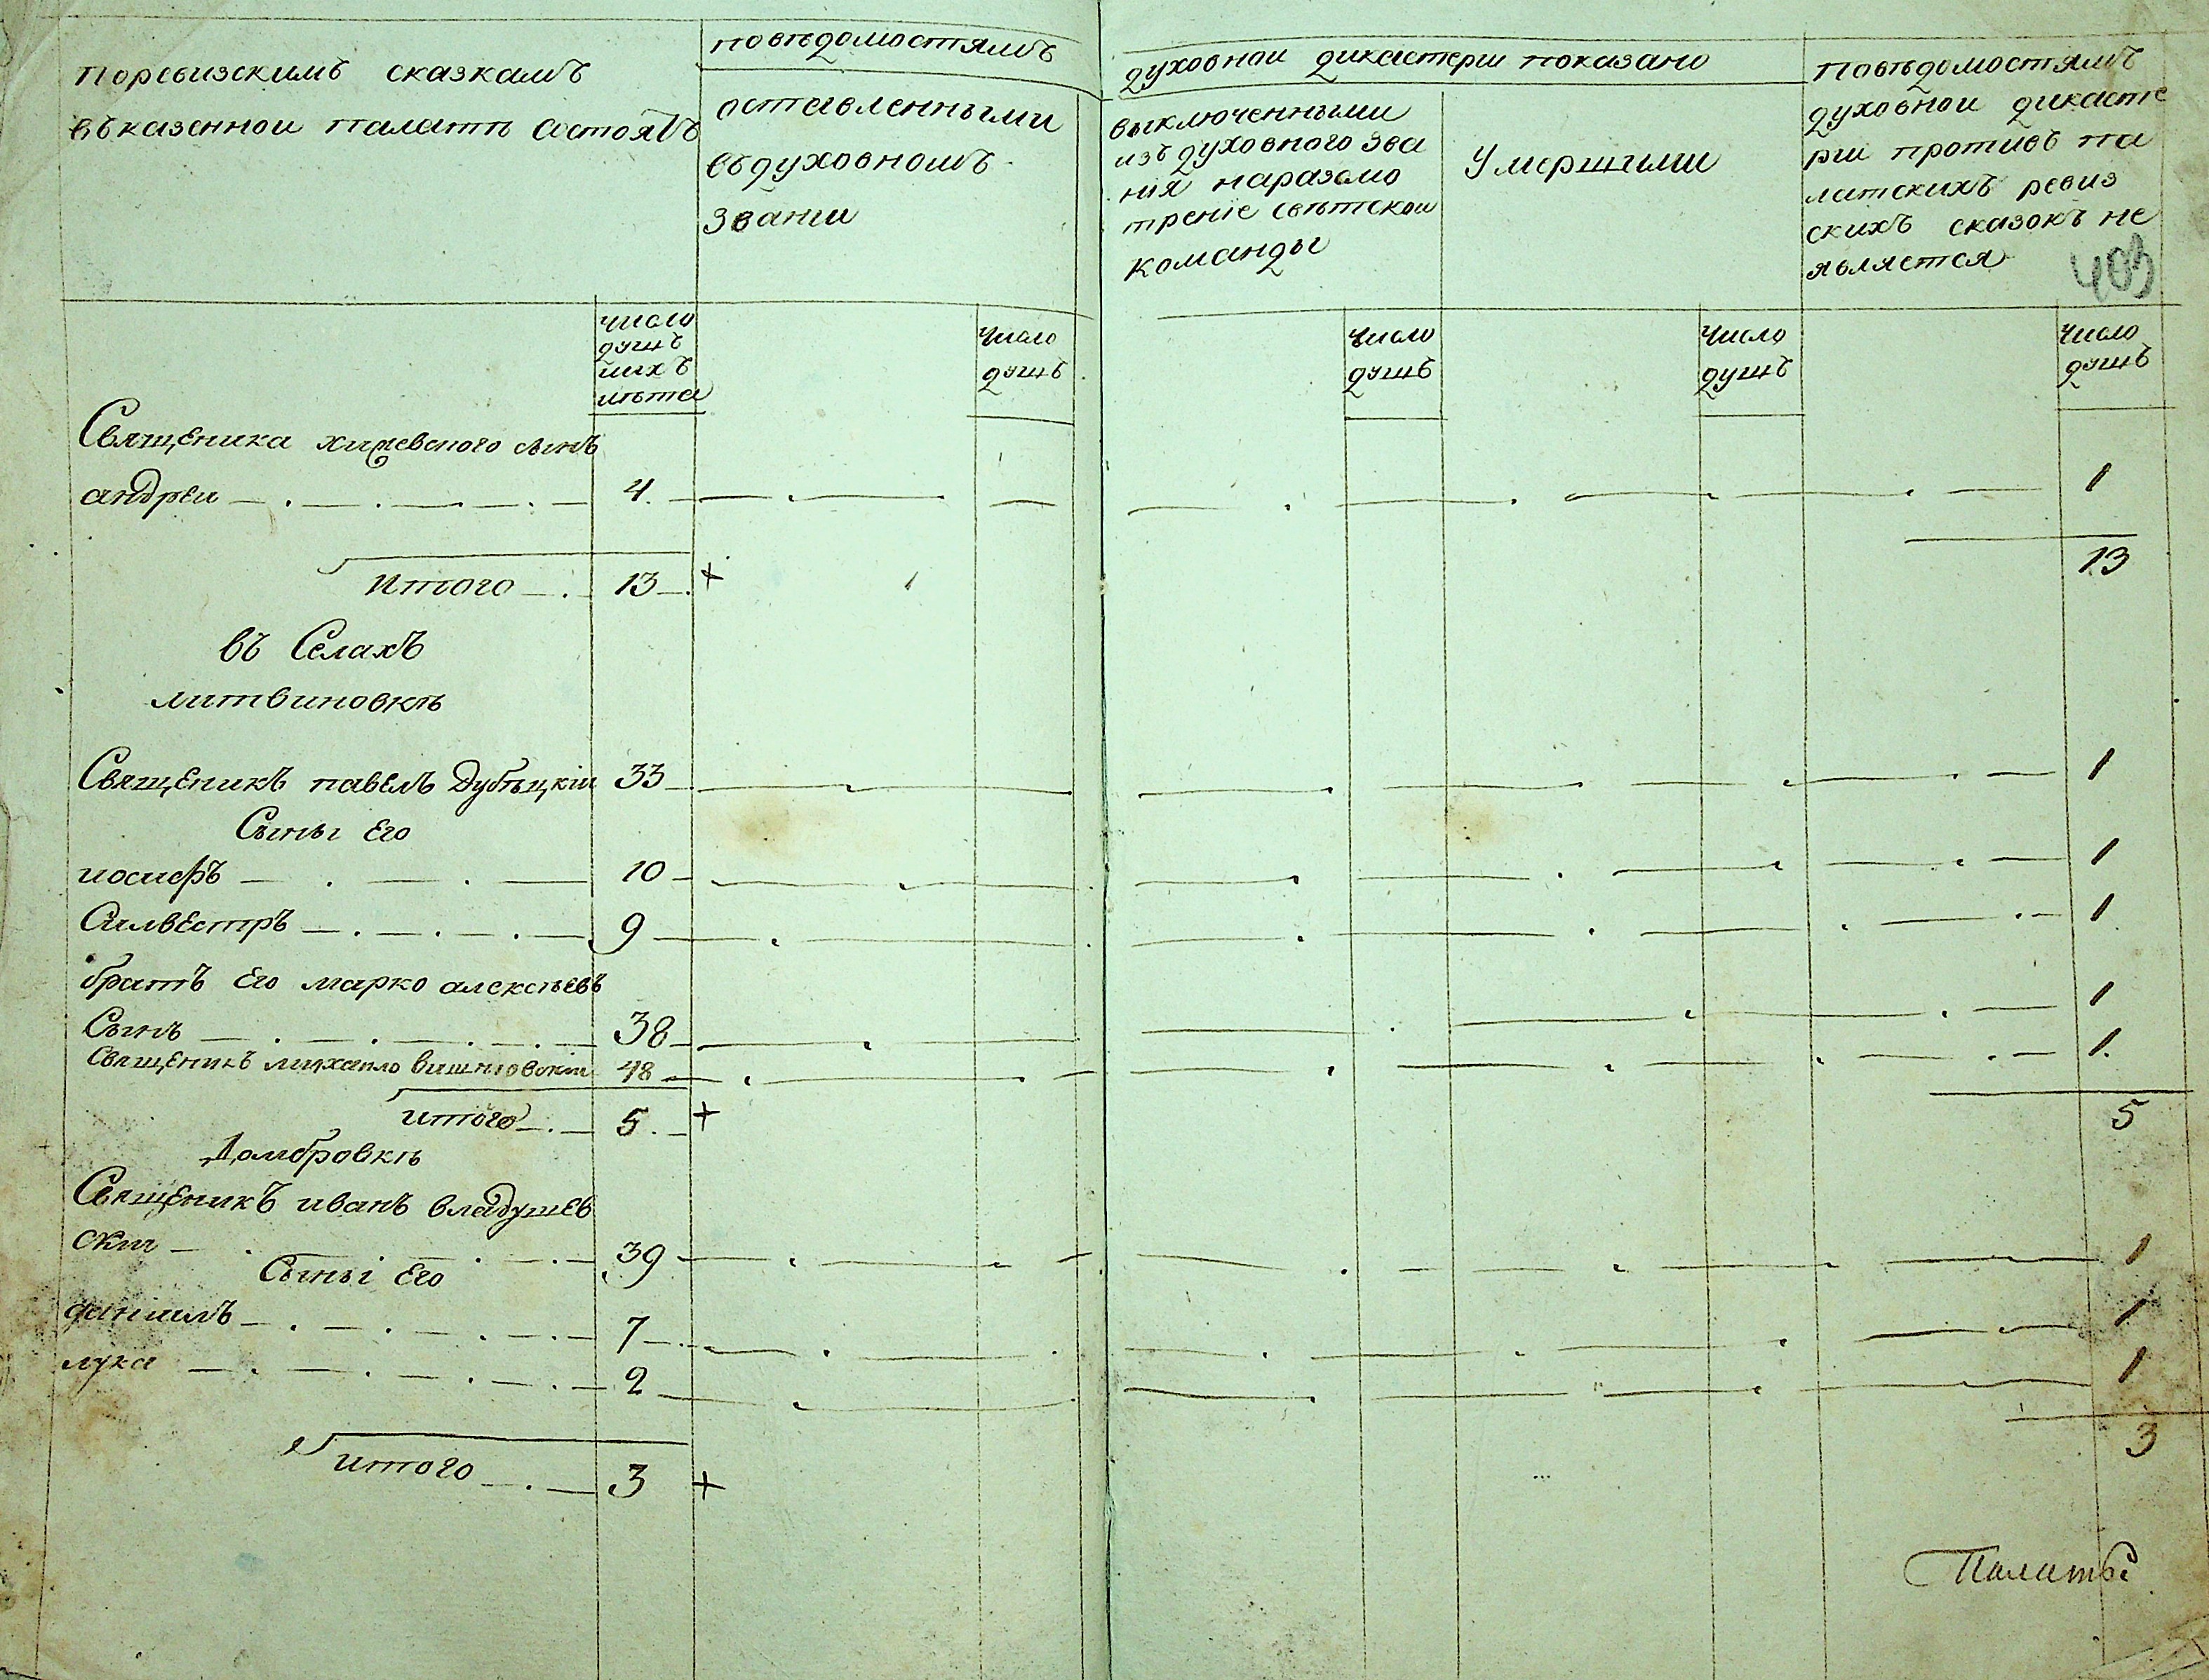 поревизскимъ сказкамъ
въказеннои палатѣ состоятъ
повѣдомостямъ
духовнои дикастерїи показано
оставленными
въдуховномъ
званїи
выключенными
изъ духовного зва
нїя наразсмо
трение свѣтскои
команды
умершими
повѣдомостямъ
духовнои дикасте
рїи противъ па
латскихъ ревиз
скихъ сказокъ не
является
403
число
душъ
ихъ
лѣта
число
душъ
число
душъ
число
душъ
число
душъ
Священика сынъ
андреи 4. 1
13
Итого 13
въ Селахъ
литвиновкѣ
Священикъ павелъ Дубѣцкїи 33 1
Сыны Его
иосифъ 10 1
Силвестръ 9 1
братъ Его марко алексѣевъ
Сынъ 38 1
Священикъ михаило вишневскїи 48 1.
5
итого 5.
Домбровкѣ
Священикъ иванъ владушев
скїи 39 1
Сыны Его
данїилъ 7 1
лука 2 1
3
итого 3
Палаты